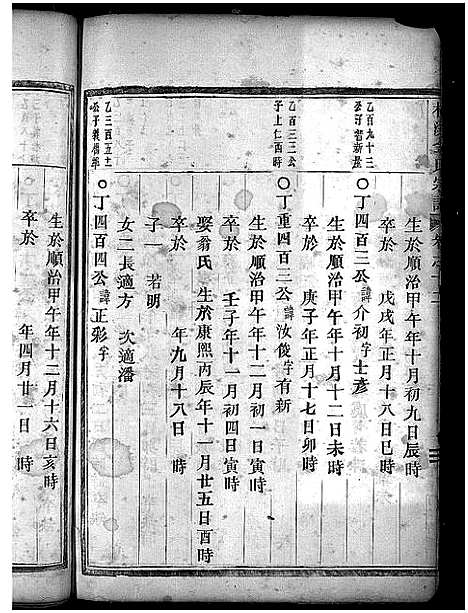 生於順治甲午年十月初九日辰時
卒於 戊戌年正月十八日巳時
乙百九十三
公子智新屋
〇丁四百三公諱介初字士彥
生於順治甲午年十月十二日未時
卒於 庚子年正月十七日卯時
乙百三三公
子上仁酉時
〇丁重四百三公諱汝俊字有新
生於順治甲午年十二月初一日寅時
卒於 壬子年十一月初四日寅時
娶翁氏 生於康熙丙辰年十一月廿五日酉時
卒於 年九月十八日 時
子一 若明
女二長適方 次適潘
乙三百五十
公子義
〇丁四百四公諱正彩字
生於順治甲午年十二月十六日亥時
卒於 年四月廿一日 時